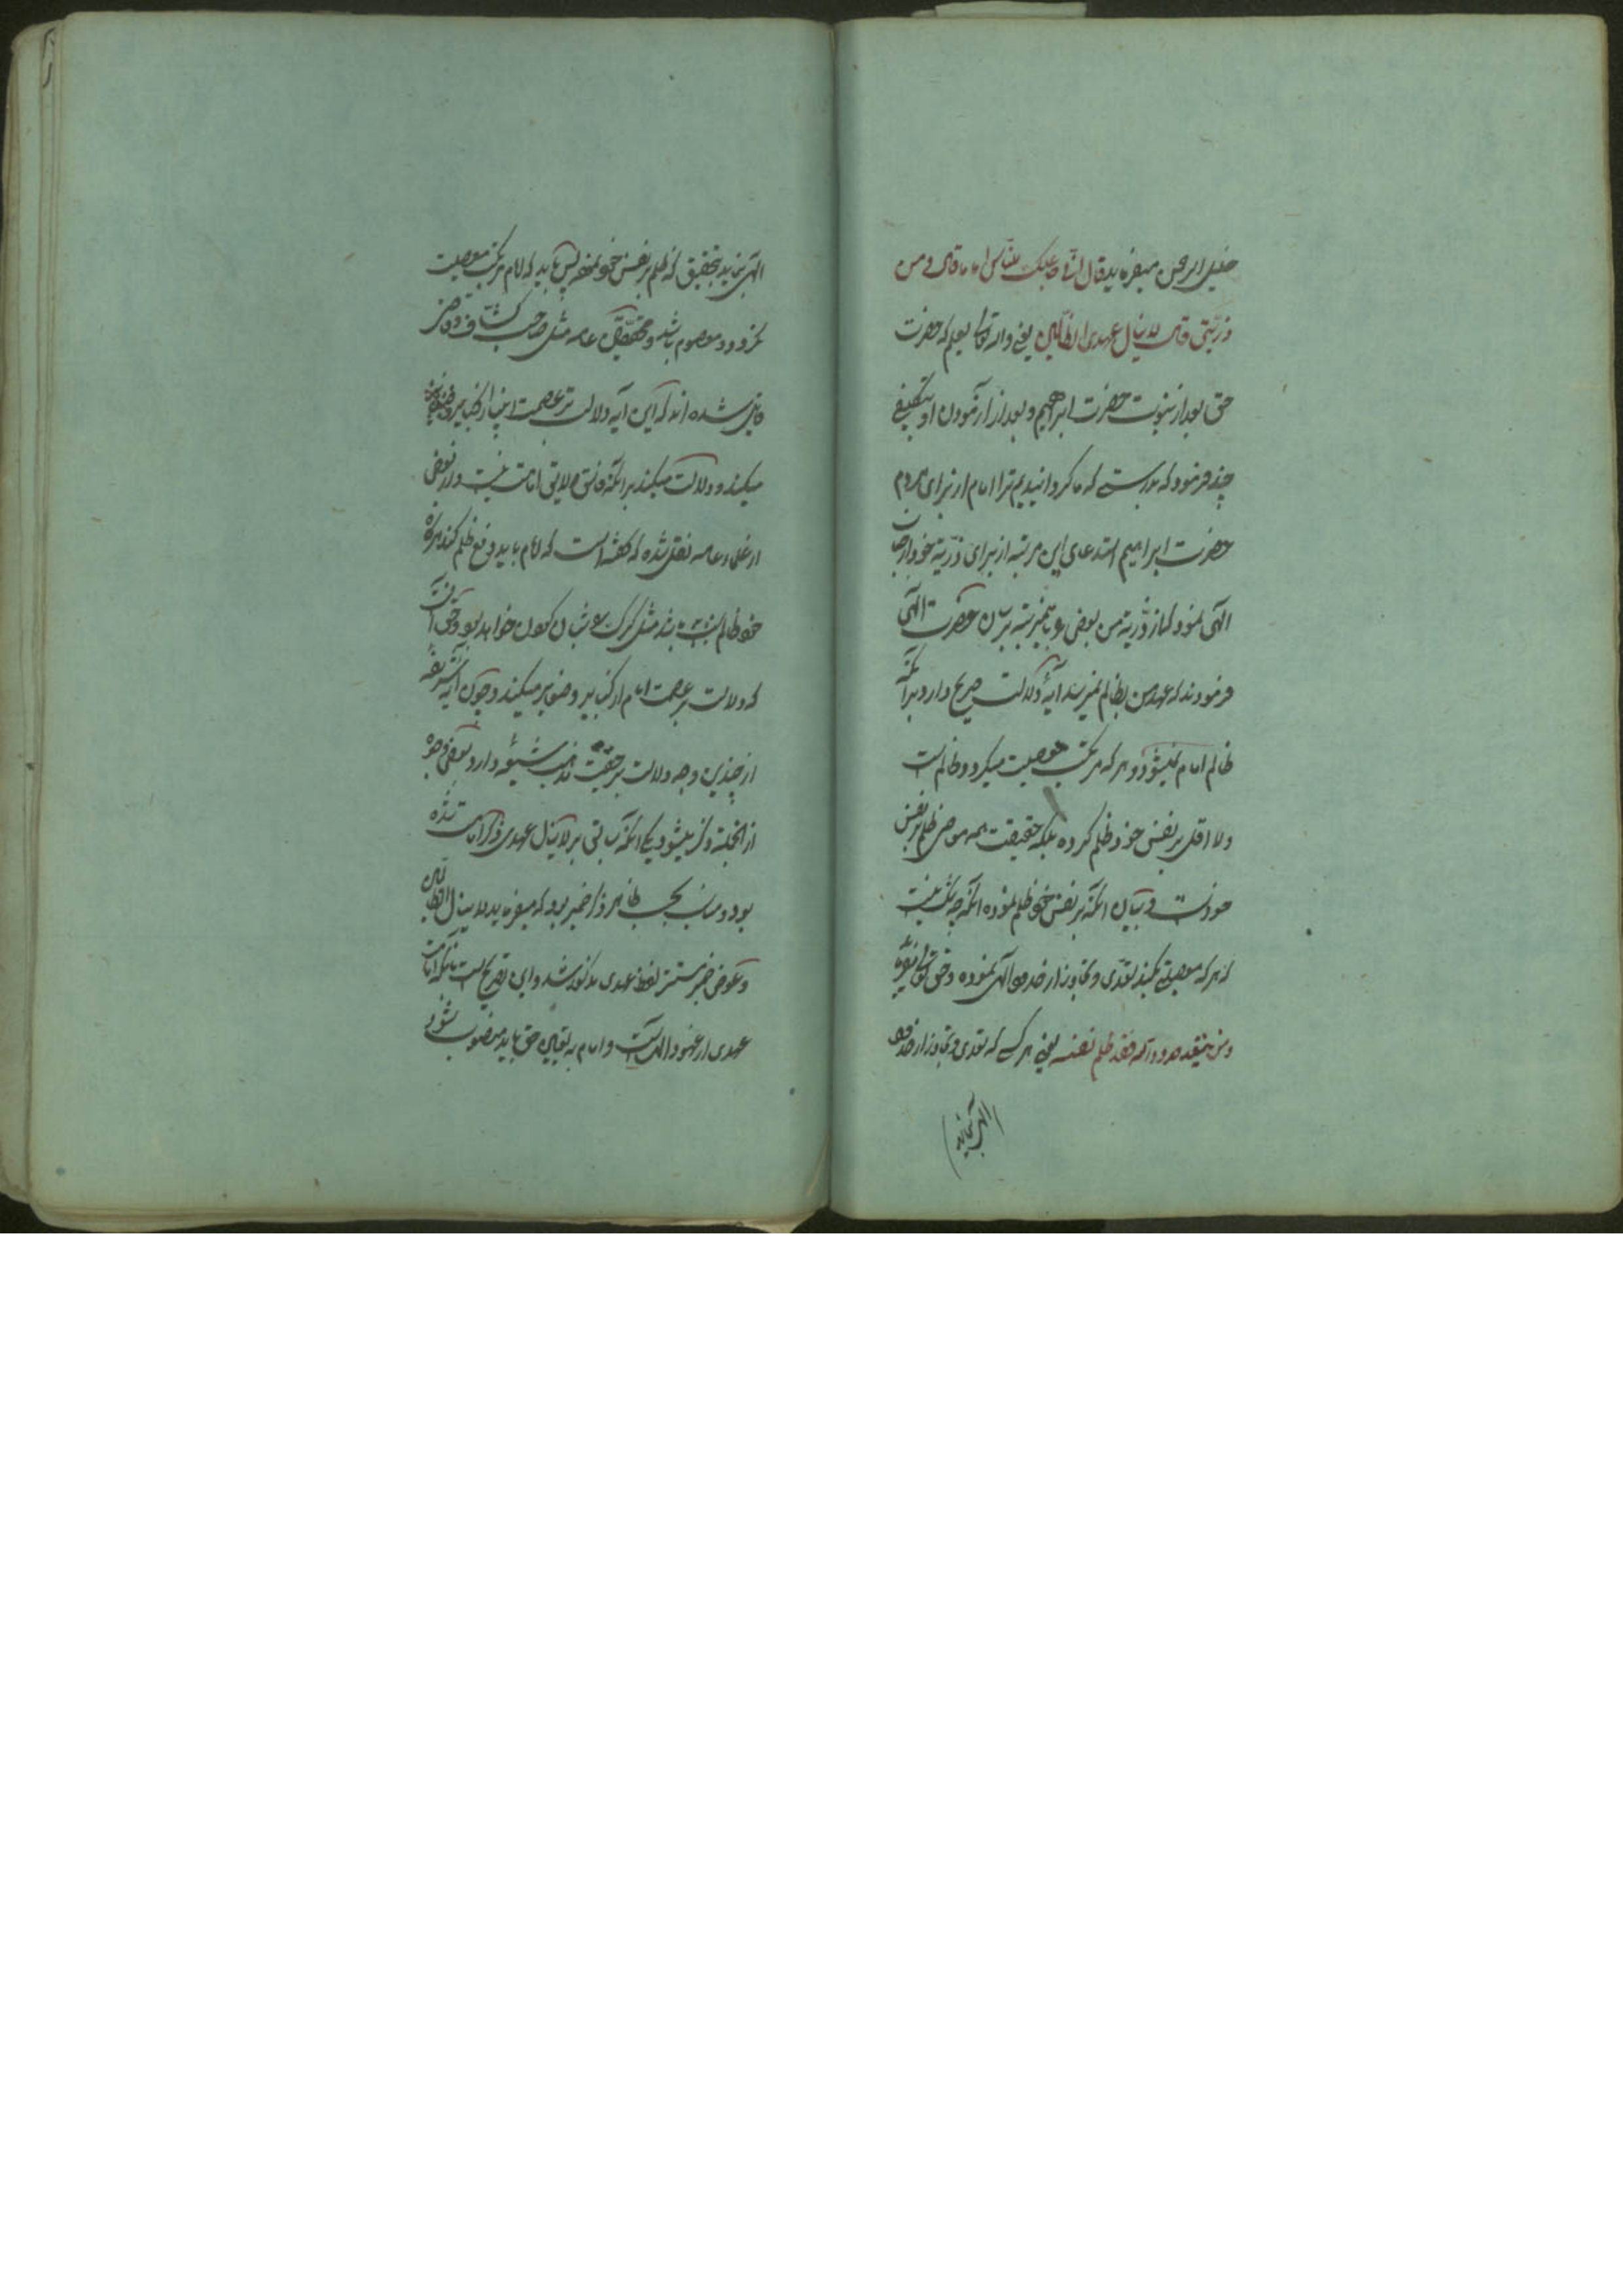 خلیل الرحمن میفرماید قال انی جاعلک للناس اماما قال و من
ذریتی قال لا ینال عهدی الظالمین یعنی والله تعالی یعلم که حضرت
حق بعد از نبوت حضرت ابراهیم و بعد از آزمودن او بتکلیفی
چند فرمود که بدرستی که ما گردانیدیم ترا امام از برای مردم
حضرت ابراهیم استدعای این مرتبه از برای ذریه خود از جناب
الهی نمود که از ذریه من بعضی را باین مرتبه برسان حضرت الهی
فرمودند که عهد من بظالم نمیرسد آیه دلالت صریح دارد بر آنکه
ظالم امام نمیشود و هر که مرتکب معصیت میگردد ظالم است
ولا اقل بر نفس خود ظلم کرده بلکه حقیقت همه معاصی ظلم بر نفس
خود است و بیان آنکه بر نفس خود ظلم نموده آنکه چه شک نیست
که هر که معصیتی میکند تعدی و تجاوز از حدود الهی نموده و حق تعالی میفرماید
و من یتعد حدود الله فقد ظلم نفسه یعنی هر کسی که تعدی و تجاوز از حدود
الهی نماید
الهی نماید بتحقیق که ظلم بر نفس خود نموده پس باید که امام مرتکب معصیت
نگردد و معصوم باشد و محققین عامه مثل صاحب کشاف و قاضی
قایل شده‌اند که این آیه دلالت بر عصمت انبیا از کبایر
میکند و دلالت میکند بر آنکه فاسق لایق امامت نیست و از بعضی
از علماء عامه نقل شده که گفته است که امام باید دفع ظلم کند هرگاه
خود ظالم باشد مثل گرگ و شبان خواهد بود و حق آنست
که دلالت بر عصمت امام از کبایر و صغایر میکند و چون آیه شریفه
از چندین وجه دلالت بر حقیت مذهب شیعه دارد بعضی وجوه
از آنجمله ذکر میشود یکی آنکه سابق بر لا ینال عهدی ذکر امامت شده
بود و مناسب بحسب ظاهر ذکر ضمیر بود که میفرماید لا ینال الظالمین
و عوض ضمیر مستتر لفظ عهدی مذکور شد و این تصریح است بآنکه امامت
عهدی از عهود الهی است و امام به تعیین حق باید منصوب بشود